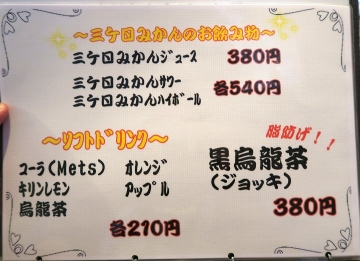 ～三ケ日みかんのお飲み物～
三ケ日みかんジュース 380円
三ケ日みかんサワー
三ケ日みかんハイボール 各540円
～ソフトドリンク～
コーラ(Mets) オレンジ
キリンレモン アップル
烏龍茶
各210円
脂肪げ!!
黒烏龍茶
(ジョッキ)
380円